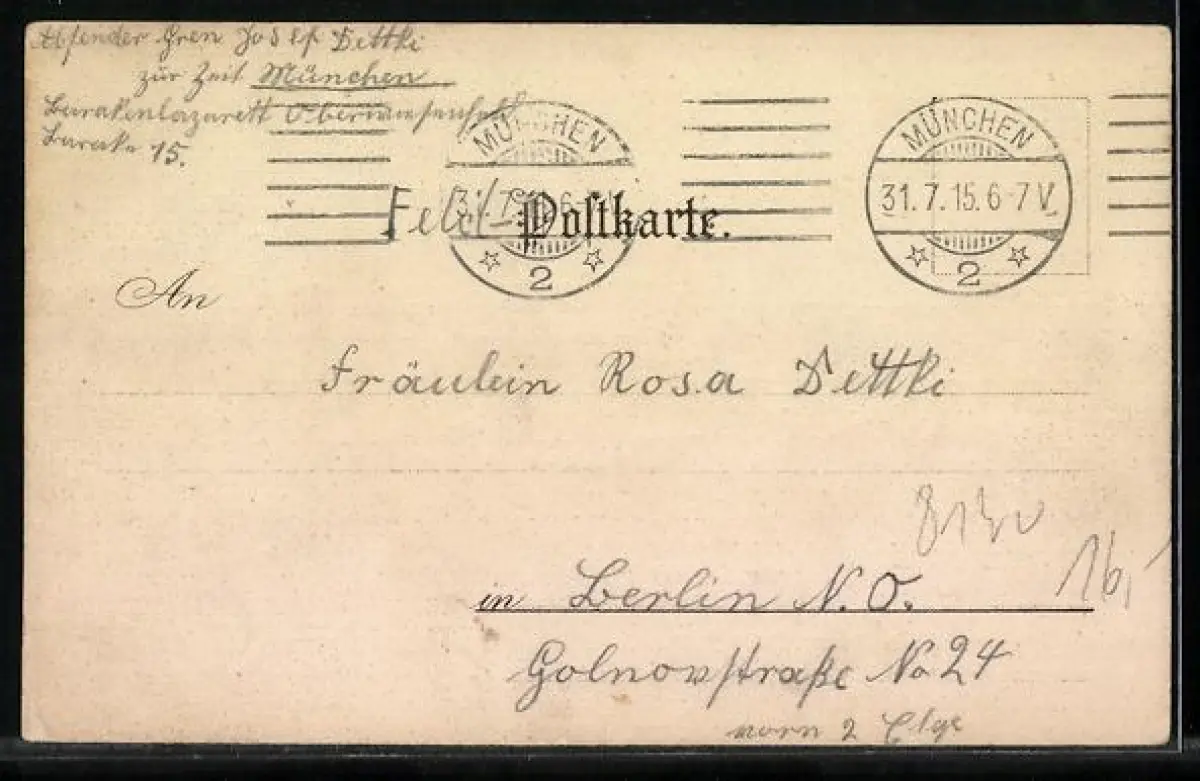 Absender Gren Josef Dettki
zur Zeit München
Barakenlazarett Oberwiesenfeld
Barake 15.
MÜNCHEN
31.7.15. 6-7 V.
2
MÜNCHEN
31.7.15. 6-7 V.
2
Feld-Postkarte.
An
Fräulein Rosa Dettki
16,
in Berlin N.O.
Golnowstraße No 24
vorn 2